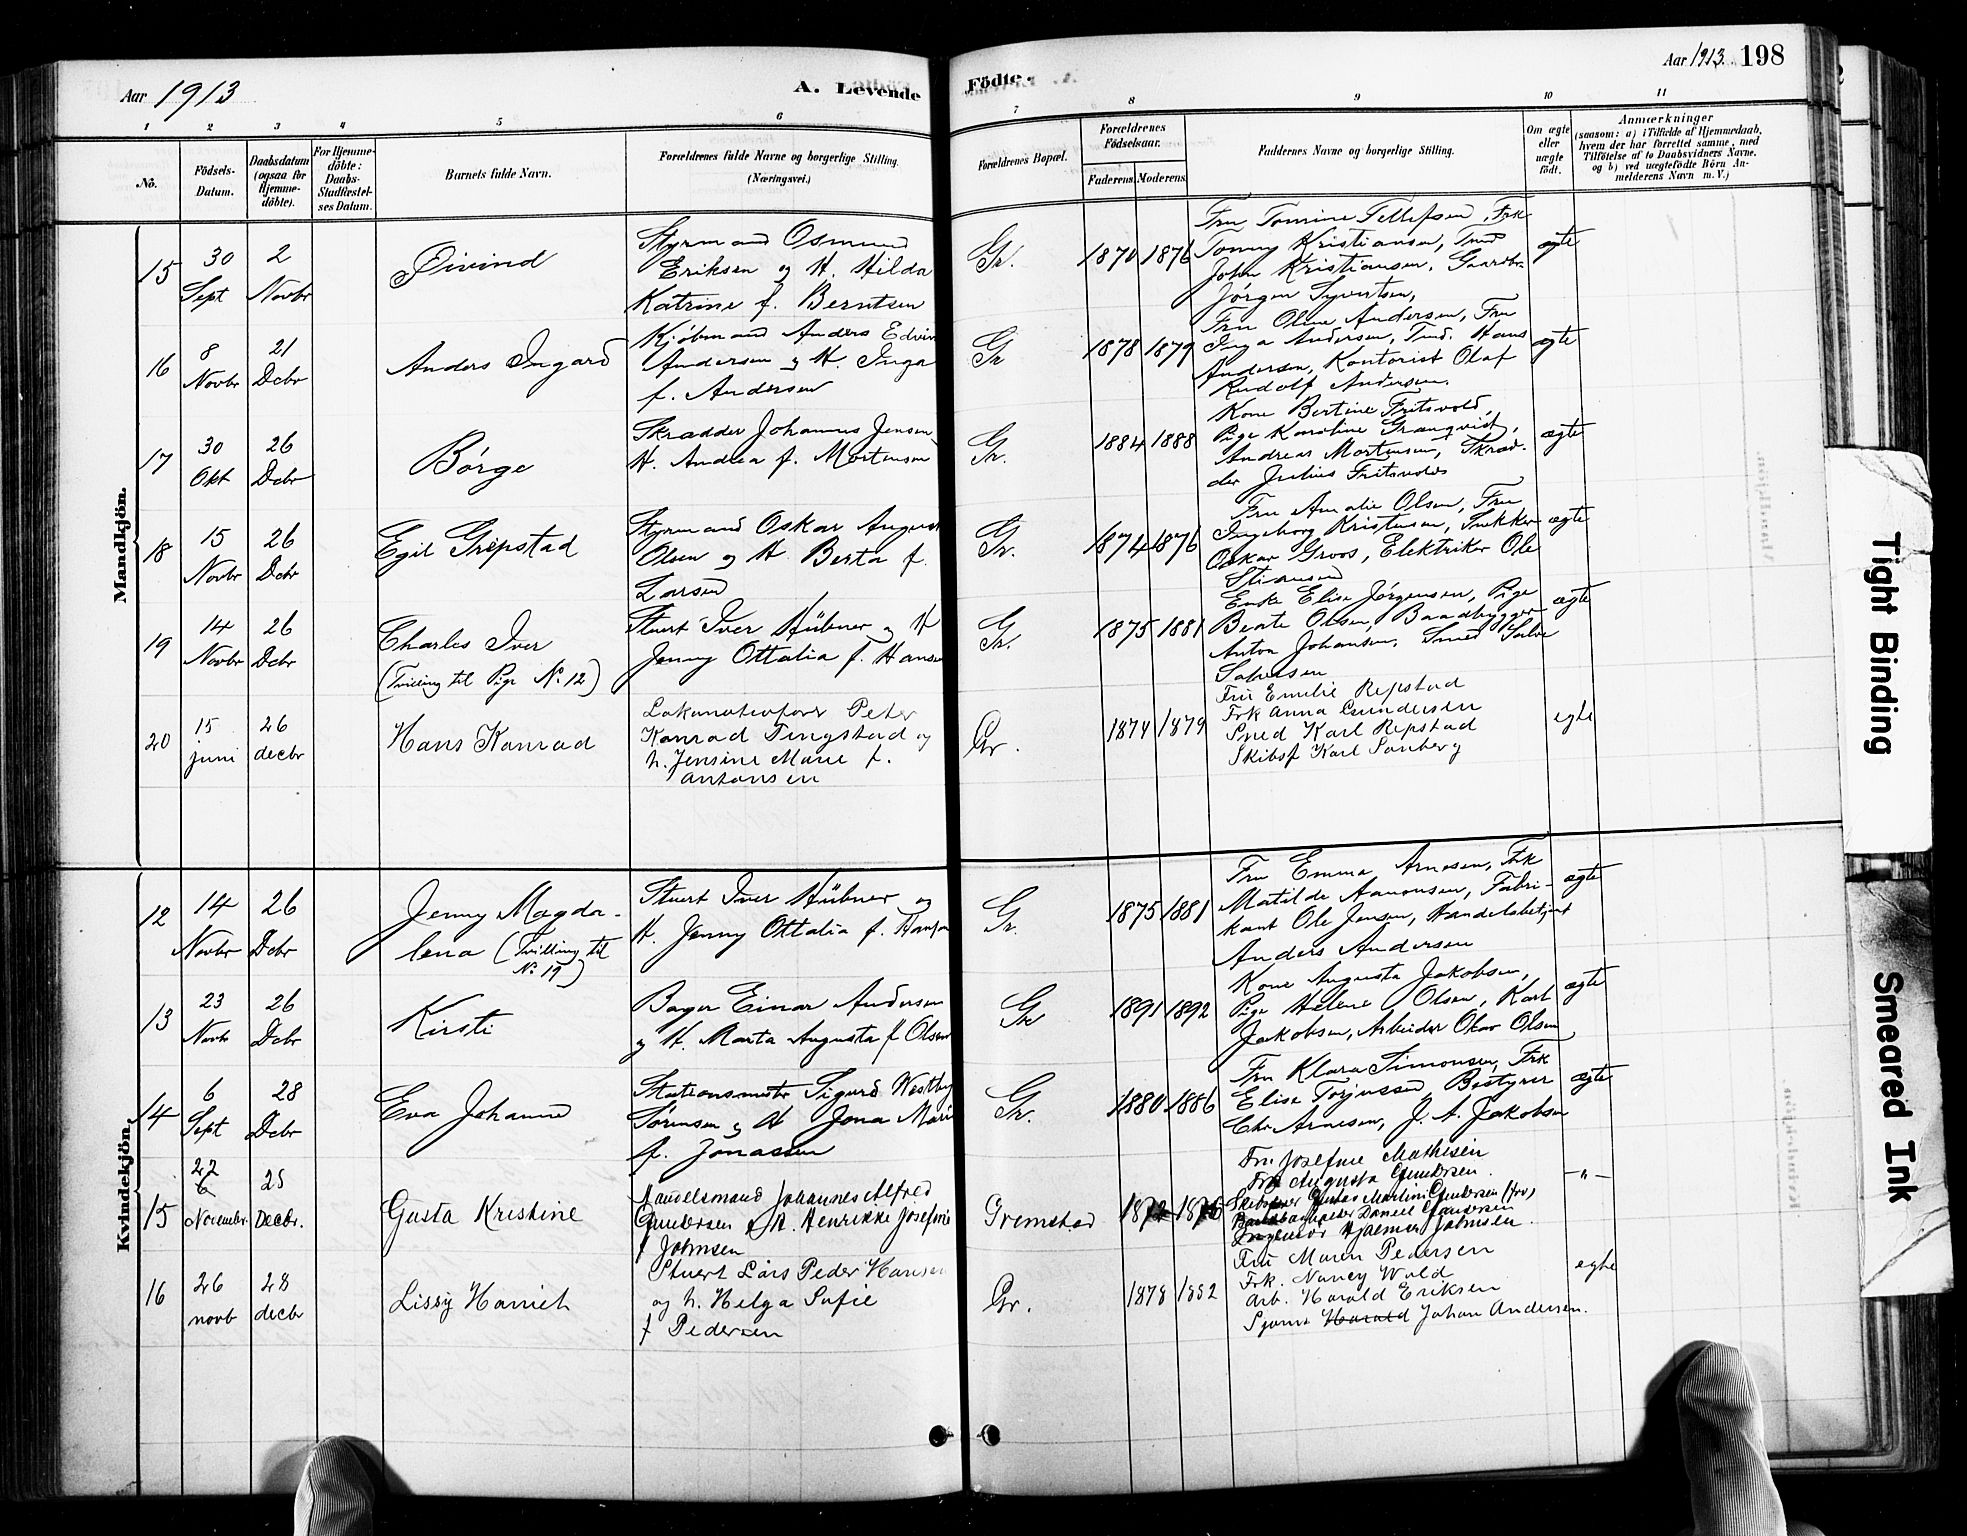 Aar 1913
A. Levende
Födte.
Aar 1913. 198
1 2 3 4 5 6 7 8 9 10 11
Nô.
Födsels-
Datum.
Daabsdatum
(ogsaa for
Hjemme-
döbte).
For Hjemme-
döbte:
Daabs-
Stadfæstel-
ses Datum.
Barnets fulde Navn.
Forældrenes fulde Navne og borgerlige Stilling.
(Næringsvei.)
Forældrenes Bopæl.
Forældrenes
Födselsaar.
Faderens. Moderens.
Faddernes Navne og borgerlige Stilling.
Om ægte
eller
uægte
födt.
Anmærkninger
(saasom: a) i Tilfælde af Hjemmedaab,
hvem der har forrettet samme, med
Tilföielse af to Daabsvidners Navne,
og b) ved uægtefödte Börn An-
melderens Navn m. V.)
Mandkjön.
15
30
Sept
2
Novbr
Øivind
Styrmand Osmund
Eriksen og H. Hilda
Katrine f. Berntsen
Gr.
1870 1876
Fru Tomine Tellefsen, Frk
Tomny Kristiansen, Tmd
John Kristiansen, Gaardbr.
Jørgen Syvertsen,
ægte
16
8
Novbr
21
Dcbr
Anders Ingard
Kjøbmand Anders Edvin
Andersen og H. Inga
f. Andersen
Gr
1878 1879
Fru Oline Andersen, Fru
Inga Andersen, Tmd. Hans
Andersen, Kontorist Olaf
Rudolf Andersen.
ægte
17
30
Okt
26
Dcbr
Børge
Skrædder Johannes Jensen
H. Andrea f. Mortensen
Gr.
1884 1888
Kone Bertine Fritsvold,
Pige Karoline Granqvist,
Andreas Mortensen, Skræd-
der Julius Fritsvold
ægte
18
15
Novbr
26
Dcbr
Egil Gripstad
Styrmand Oskar August
Olsen og H. Berta f.
Larsen
Gr.
1874 1876
Fru Amalie Olsen, Fru
Ingeborg Kristensen, Snekker
Oskar Groos, Elektriker Ole
ægte
19
14
Novbr
26
Dcbr
Charles Iver
(Tvilling til Pige No 12)
Stuert Iver Hübner og H
Jenny Ottalia f. Hansen
Gr.
1875 1881
Enke Elise Jørgensen, Pige
Beate Olsen, Baadbygger
Anton Johansen, Smed Salve
Salvesen
ægte
20
15
juni
26
decbr
Hans Konrad
Lokomotivfører Peter
Konrad Tingstad og
h. Jensine Marie f.
Antonsen
Gr.
1874 1879
Fru Emilie Repstad
Frk Anna Gundersen
Smed Karl Repstad
Skibsf Karl Sanberg
egte
Kvindekjön.
12
14
Novbr
26
Dcbr
Jenny Magda-
lena (Tvilling til
No 19)
Stuert Iver Hübner og
H. Jenny Ottalia f. Hansen
Gr.
1875 1881
Fru Emma Arnesen, Frk
Matilde Aanonsen, Fabri-
kant Ole Jensen, Handelsbetjent
Anders Andersen
ægte
13
23
Novbr
26
Dcbr
Kirsti
Bager Einar Andersen
og H. Marta Augusta f Olsen
Gr
1891 1892
Kone Augusta Jakobsen,
Pige Helene Olsen, Karl
Jakobsen, Arbeider Oskar Olsen
ægte
14
6
Sept
28
Dcbr
Eva Johanne
Stationsmester Sigurd Westby
Sørensen og H Jona Marie
f. Jonassen
Gr.
1880 1886
Fru Klara Simonsen, Frk
Elise Torjussen, Bestyrer
Chr Arnesen, J. A. Jakobsen
ægte
15
22
6
November
25
Decbr.
Gusta Kristine
Handelsmand Johannes Alfred
Gundersen og H. Henrikke Josefine
f Johnsen
Grimstad
Fru Josefine Mathisen
Frk Augusta Gundersen
Skibsfører Gustav Martin Gundersen (frv)
Daniel Gundersen
Ingeniør Hjalmar Johnsen.
-"-
16
26
novb
28
decbr
Lissy Harriet
Stuert Lars Peder Hansen
og h. Helga Sofie
f Pedersen
Gr.
1878 1882
Fru Maren Pedersen
Frk. Nancy Wold
Arb. Harald Eriksen
Sjømd Harald Johan Andersen.
egte
Tight Binding
Smeared Ink